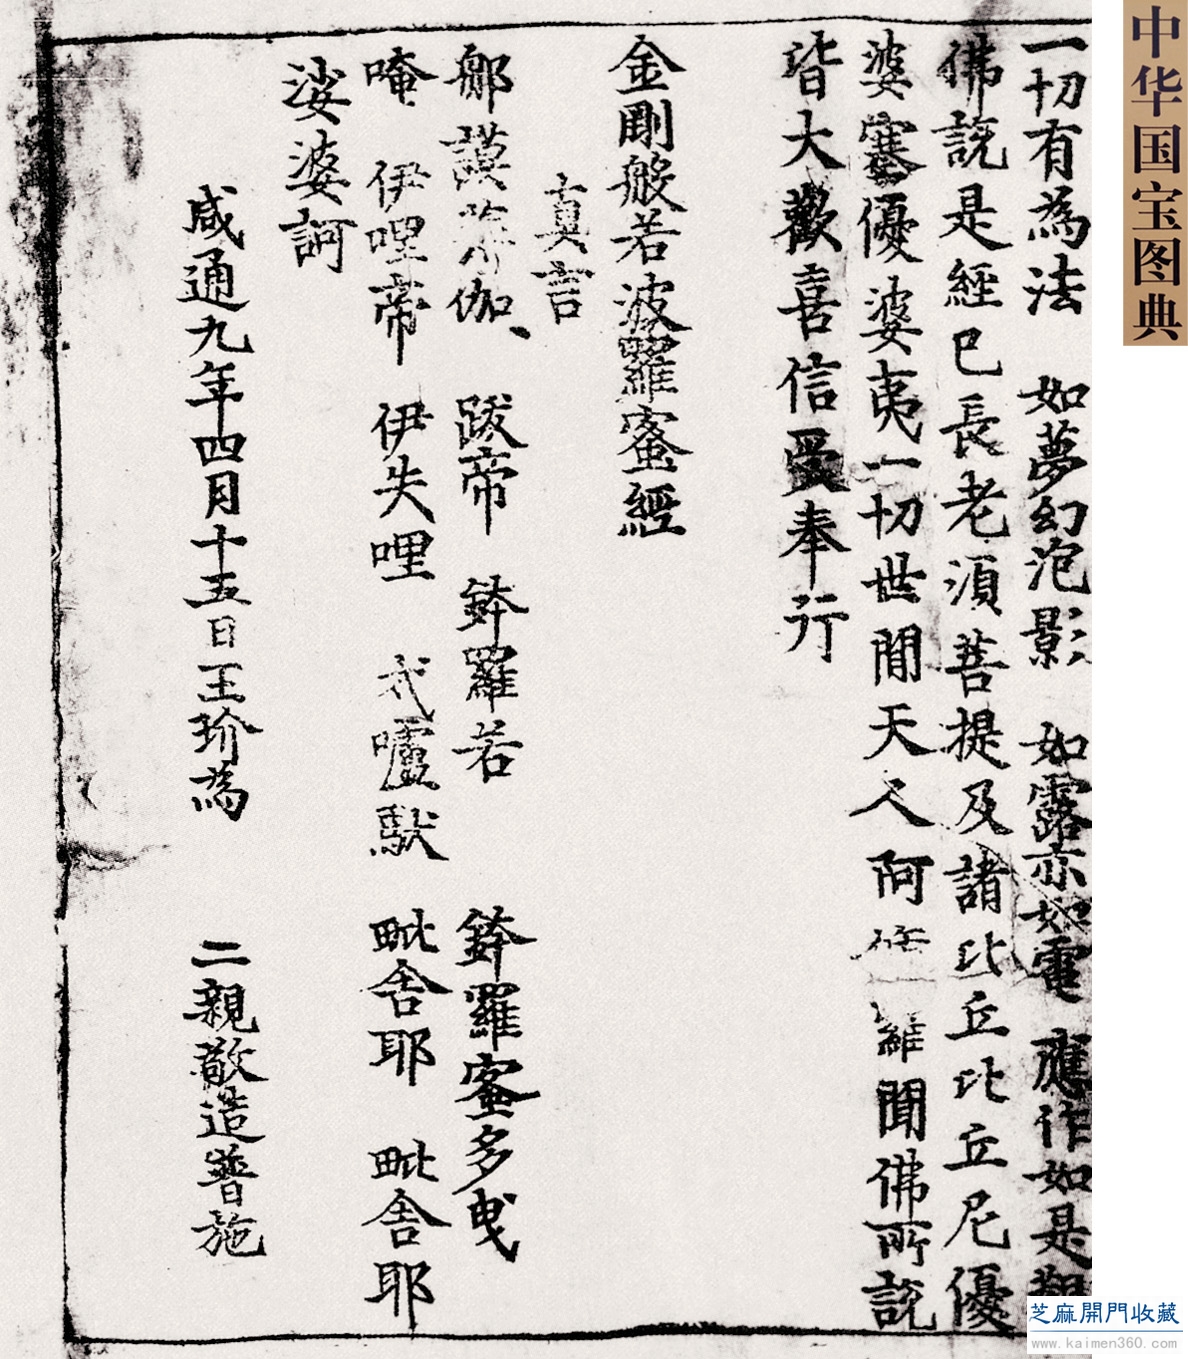 中华国宝图典
一切有為法　如夢幻泡影　如露亦如電　應作如是觀
佛說是經已長老須菩提及諸比丘比丘尼優
婆塞優婆夷一切世間天人阿修羅聞佛所說
皆大歡喜信受奉行
金剛般若波羅蜜經
真言
那謨薄伽、　跋帝　鉢羅若　鉢羅蜜多曳
唵　伊哩帝　伊失哩　式嚧馱　毗舍耶　毗舍耶
娑婆訶
咸通九年四月十五日王玠為　二親敬造普施
芝麻開門收藏
www.kaimen360.com